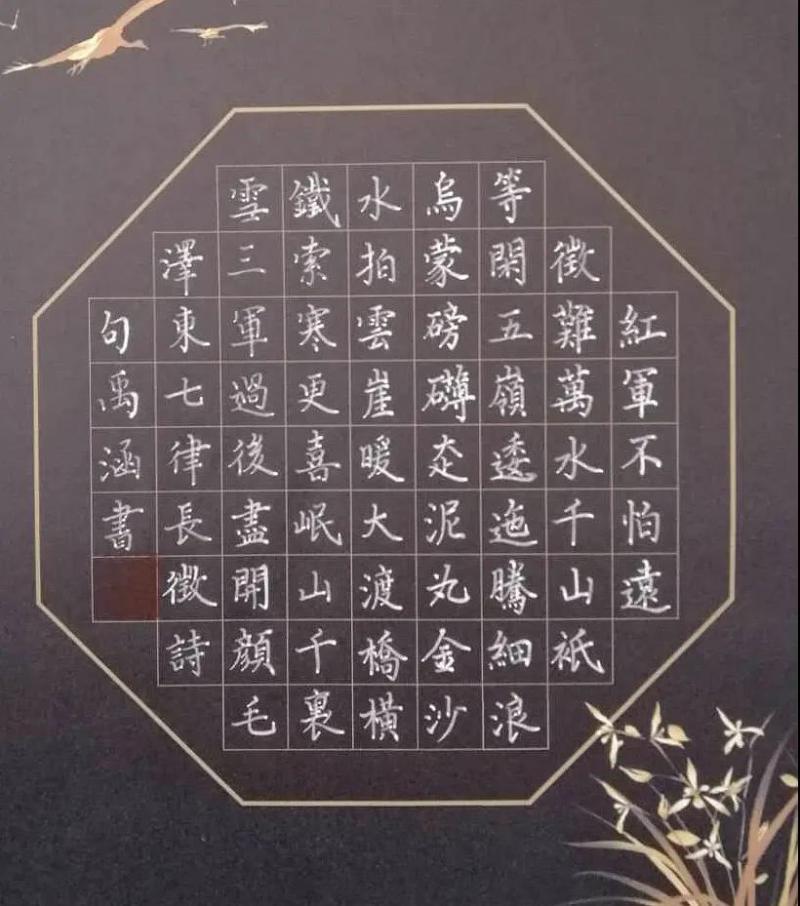 紅軍不怕遠
徵難萬水千山祇
等閑五嶺逶迤騰細浪
烏蒙磅礴走泥丸金沙
水拍雲崖暖大渡橋橫
鐵索寒更喜岷山千裏
雪三軍過後盡開顔毛
澤東七律長徵詩
句禹涵書